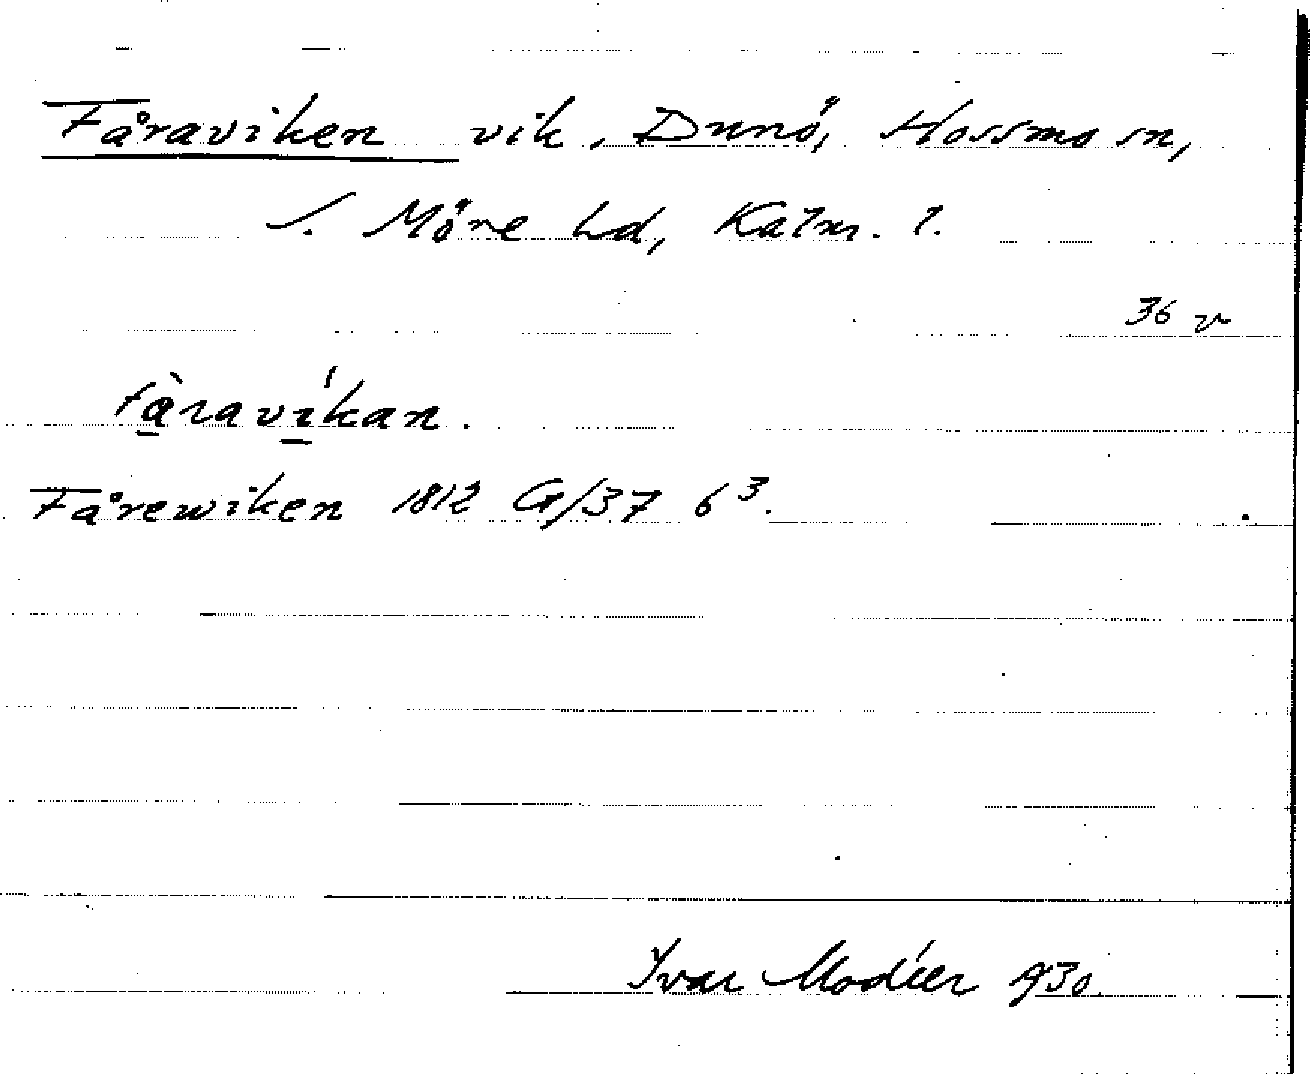 Fåraviken vik, Dunö, Hossmo sn,
S. Möre hd, Kalm. l.
36 v
fàravíkan.
Fårewiken 1812 G/37 6³.
Ivar Modéer 1930.